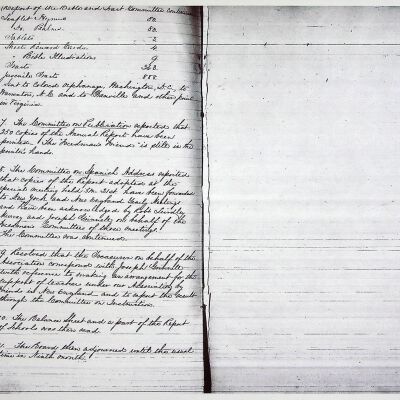 (Report of the Bible and Tract Committee continued
Leaflet Hymns 50.
Do. Psalms 50.
Tablets 2
Sheets 4
Bible Illustrations 9
Tracts
Juvenile Tracts 888.
Sent to colored orphanage, Washington, D.C., to
N.C. and to Danville and other points
in Virginia.
7. The Committee on Publication reported that
250 copies of the Annual Report have been
printed. The Freedman's Friend is still in the
printer's hands.
8. The Committee on Spanish Address reported
that copies of the Report adopted at the
special meeting held 21st have been forwarded
to New York and New England Yearly Meetings
and their been acknowledged by Robt Lindley
Murray and Joseph on behalf of the
Committees of those meetings.
The Committee was continued.
9. Resolved that the Treasurer on behalf of the
Association correspond with Joseph
with reference to making an arrangement for the
support of teachers under our Association by
Friends in New England and to report the result
through the Committee on Instruction.
10. The Balance Sheet and a part of the Report
of Schools was then read.
11. The Board then adjourned until the usual
time in Ninth month.